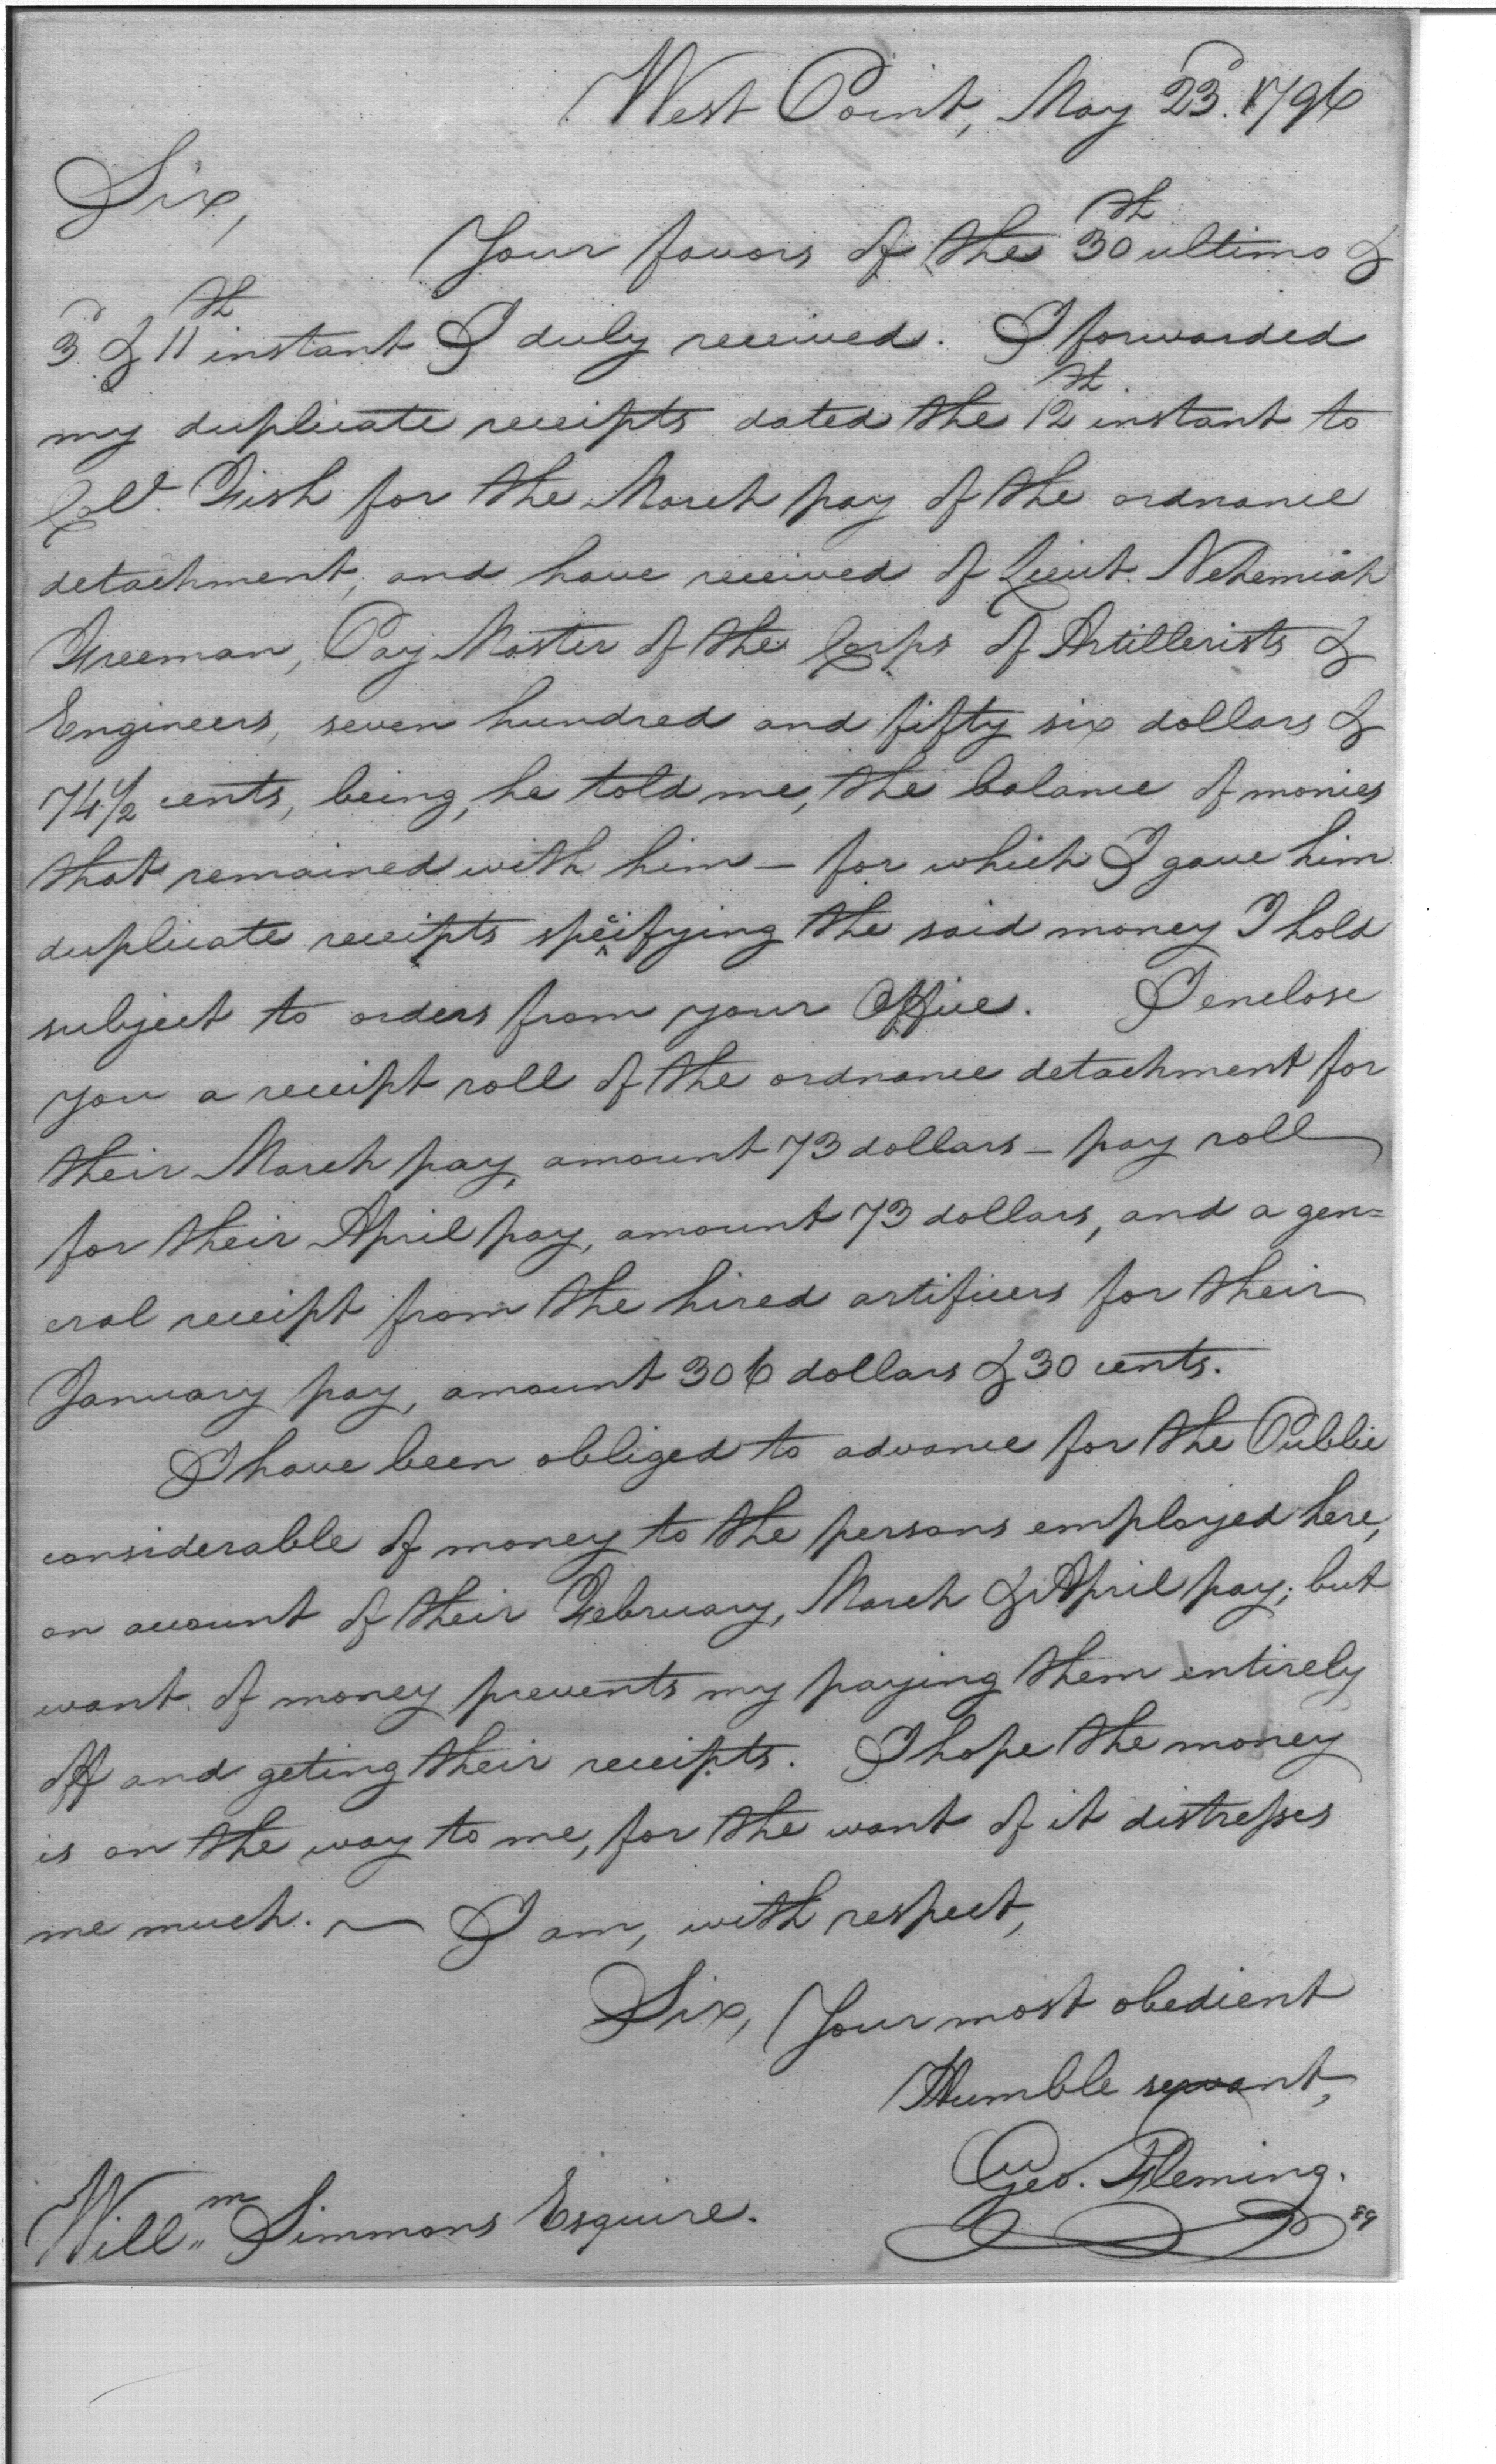 West Point, May 23d. 1796
Sir,
Your favors of the 30th ultimo &
3d & 11th instant I duly received. I forwarded
my duplicate receipts dated the 12th instant to
Colo. Fish for the March pay of the ordnance
detachment, and have received of Lieut. Nehemiah
Freeman, Pay Master of the Corps of Artillerists &
Engineers, seven hundred and fifty six dollars &
74 1/2 cents, being, he told me, the balance of monies
that remained with him – for which I gave him
duplicate receipts specifying the said money I hold
subject to orders from your Office. I enclose
you a receipt roll of the ordnance detachment for
their March pay, amount 73 dollars – pay roll
for their April pay, amount 73 dollars, and a gen=
eral receipt from the hired artificers for their
January pay, amount 306 dollars & 30 cents.
I have been obliged to advance for the Public
considerable of money to the persons employed here,
on account of their February, March & April pay; but
want of money prevents my paying them entirely
off and geting their receipts. I hope the money
is on the way to me, for the want of it distresses
me much. — I am, with respect,
Sir, Your most obedient
Humble servant,
Geo. Fleming.
Willm. Simmons Esquire.
89